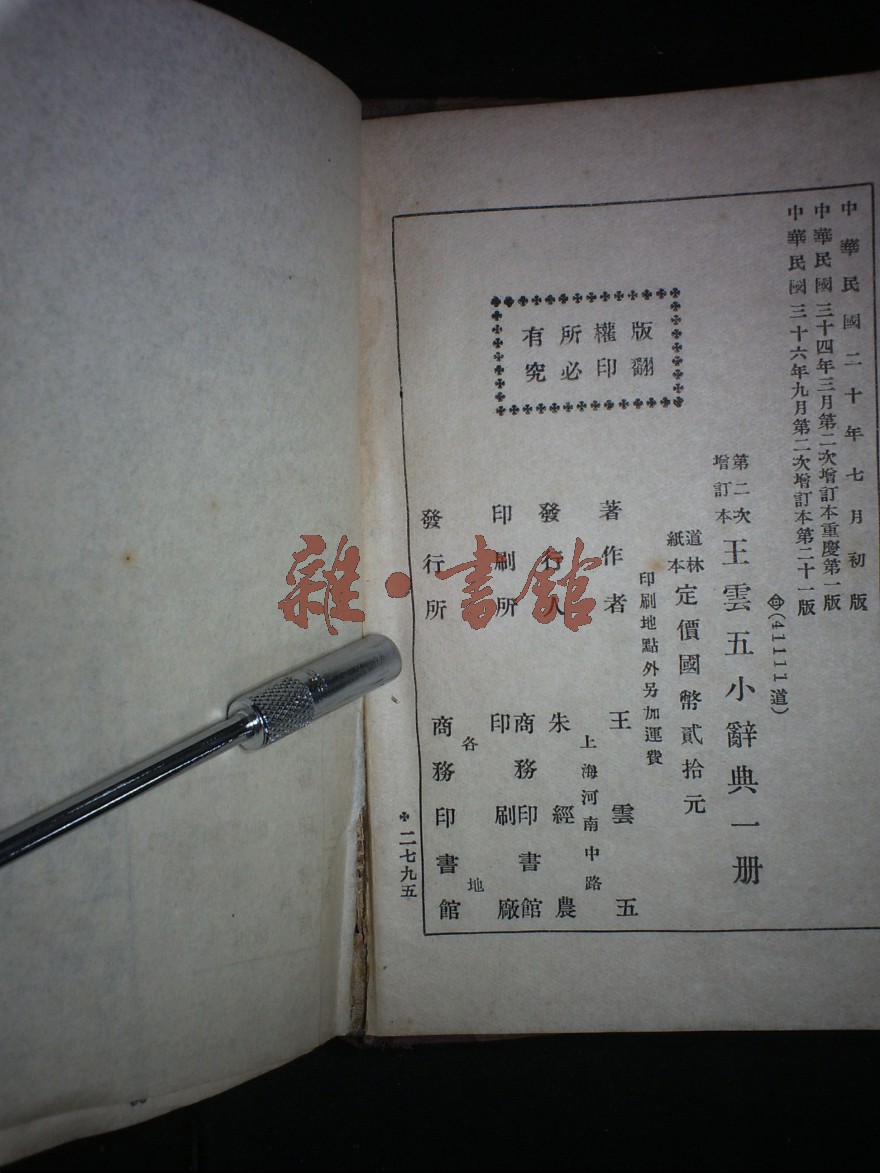 中華民國二十年七月初版
中華民國三十四年三月第二次增訂本重慶第一版
中華民國三十六年九月第二次增訂本第二十一版
(41111道)
第二次
增訂本
王雲五小辭典一册
道林
紙本
定價國幣貳拾元
印刷地點外另加運費
版權所有
翻印必究
著作者 王雲五
上海河南中路
發行人 朱經農
印刷所 商務印書館
印刷廠
發行所 各地
商務印書館
二七九五
雜·書館